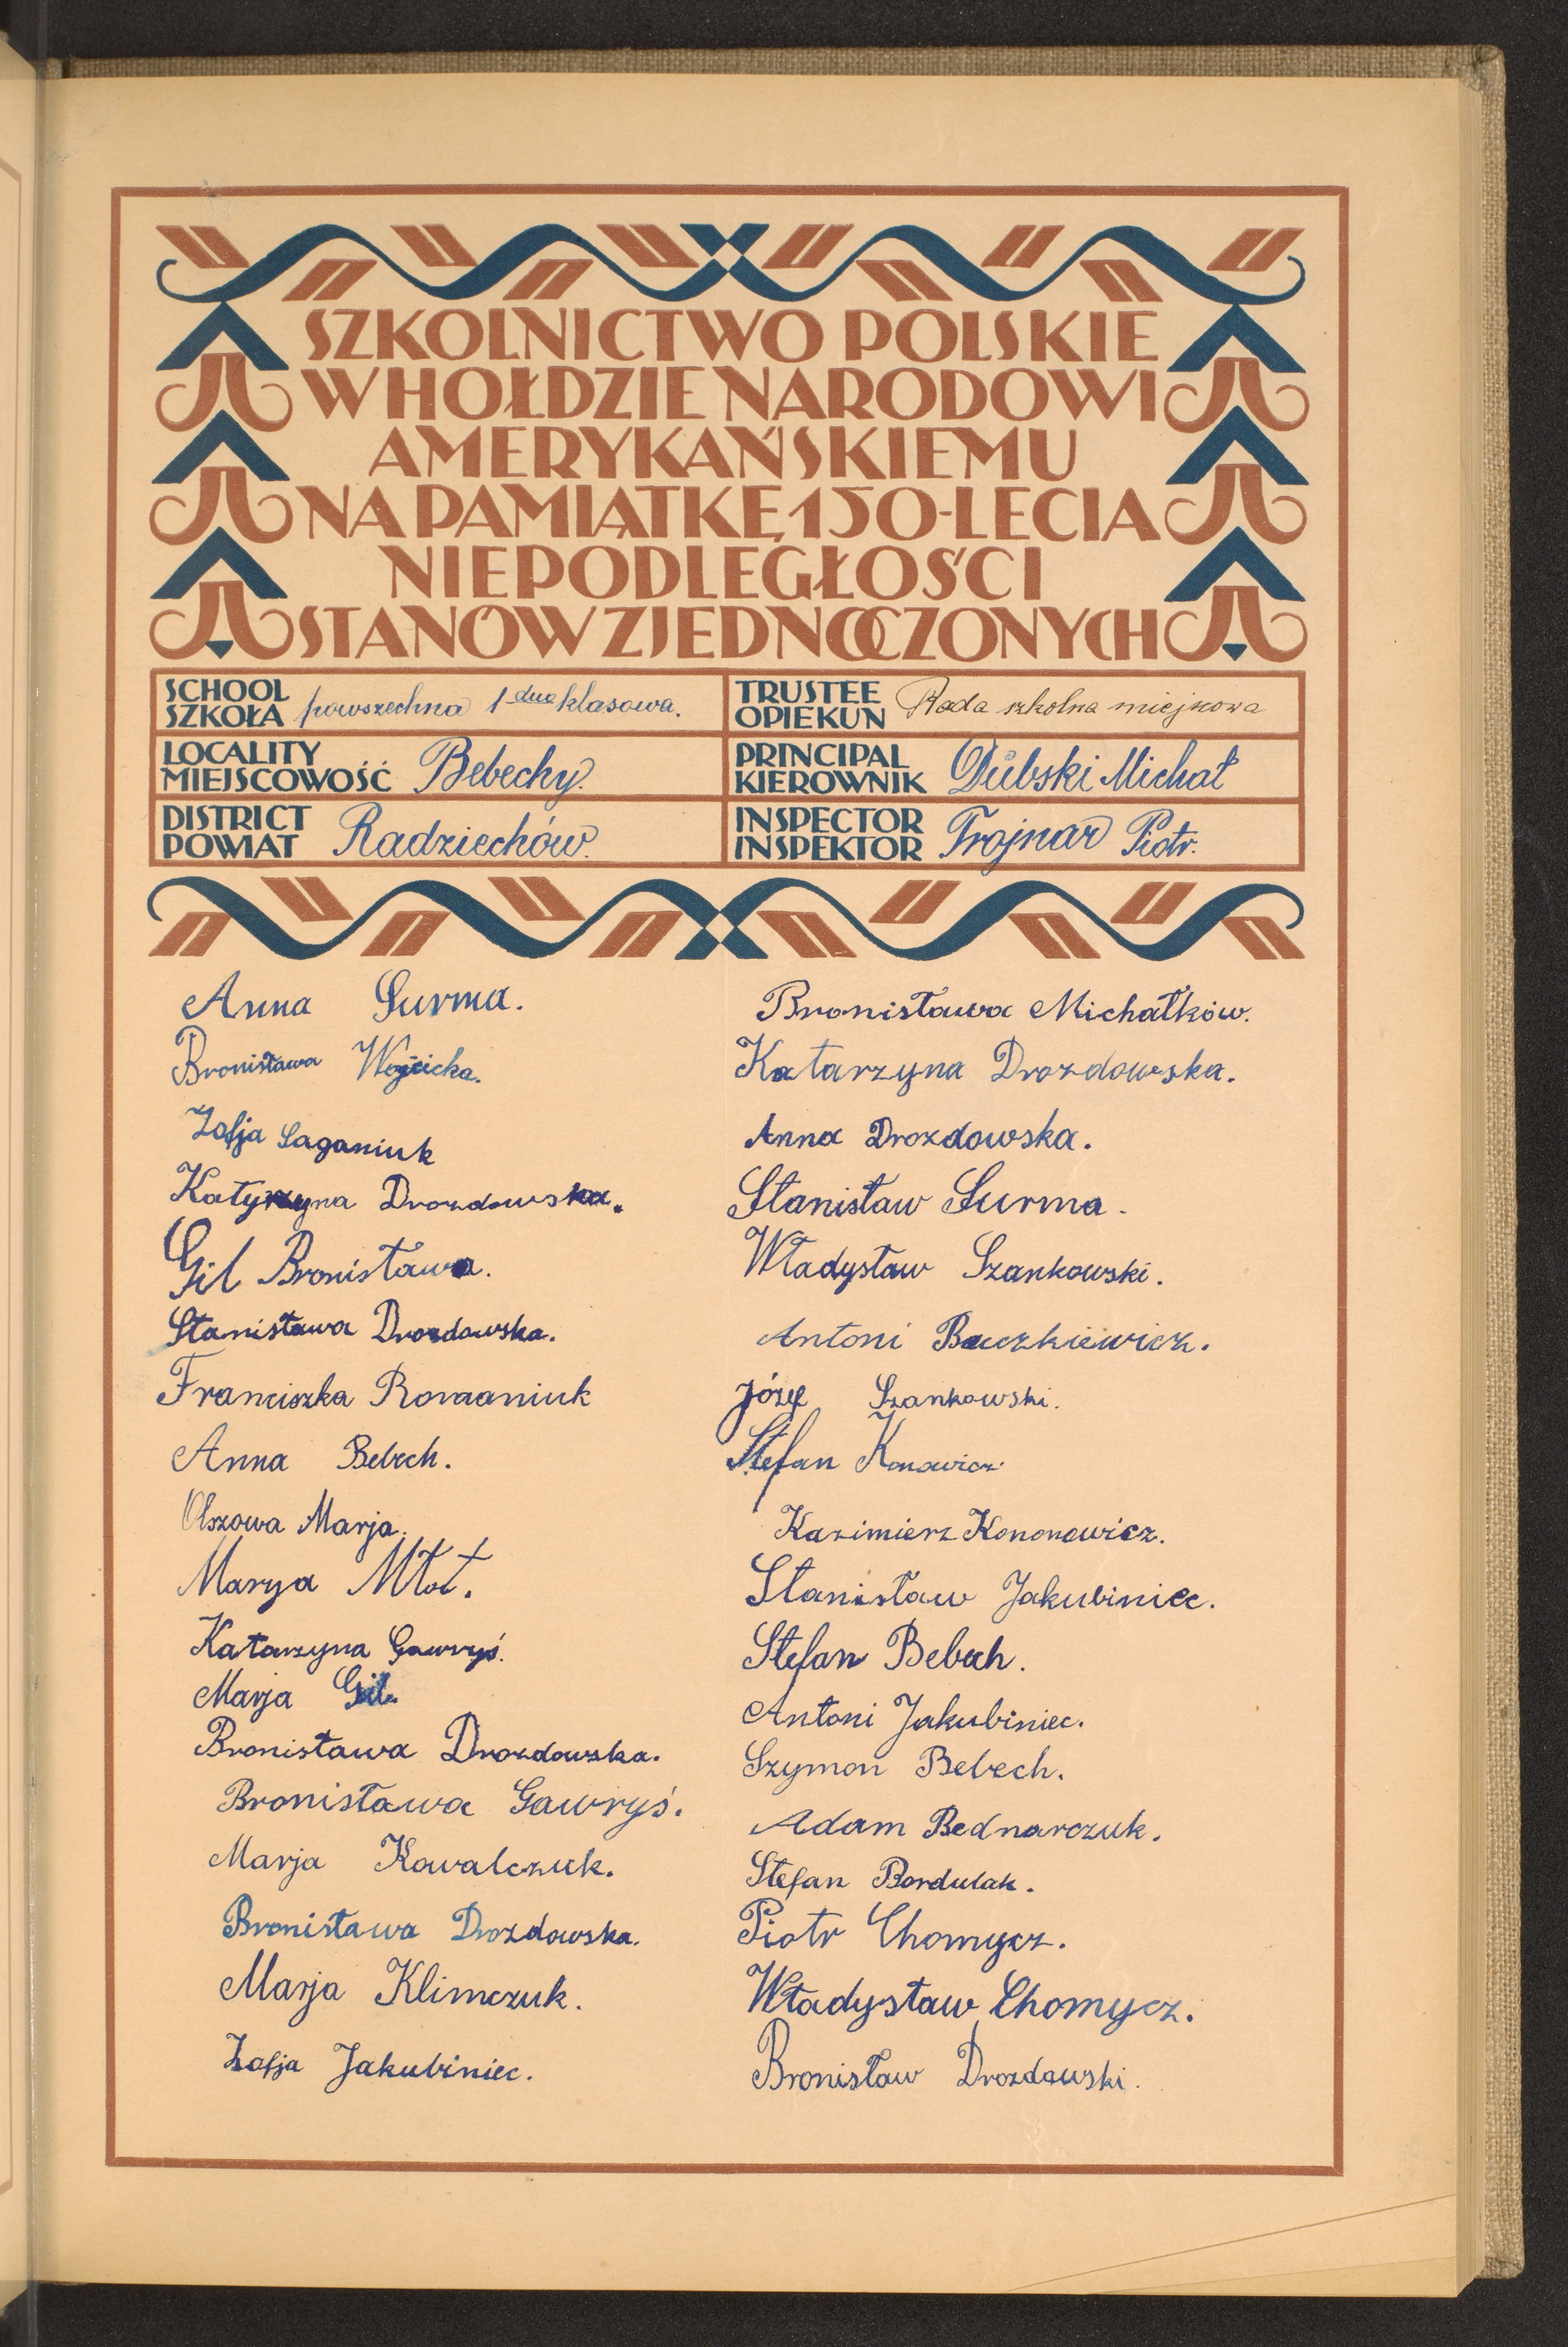 SZKOLNICTWO POLSKIE
W HOŁDZIE NARODOWI
AMERYKAŃSKIEMU
NA PAMIĄTKĘ 150-LECIA
NIEPODLEGŁOŚCI
STANÓW ZJEDNOCZONYCH
SCHOOL
SZKOŁA powszechna 1-dno klasowa.
TRUSTEE
OPIEKUN Rada szkolna miejscowa
LOCALITY
MIEJSCOWOŚĆ Bebechy.
PRINCIPAL
KIEROWNIK Dubski Michał
DISTRICT
POWIAT Radziechów.
INSPECTOR
INSPEKTOR Trojnar Piotr.
Anna Surma.
Bronisława Wojcicka.
Zofja Saganiuk
Katyrzyna Drozdowska.
Gil Bronisława.
Stanisława Drozdowska.
Franciszka Romaniuk
Anna Bebech.
Olszowa Marja.
Marya Młot.
Katarzyna Gawryś.
Marja Gil.
Bronisława Drozdowska.
Bronisława Gawryś.
Marja Kowalczuk.
Bronisława Drozdowska.
Marja Klimczuk.
Zofja Jakubiniec.
Bronisława Michałków.
Katarzyna Drozdowska.
Anna Drozdowska.
Stanisław Surma.
Władysław Szankowski.
Antoni Baczkiewicz.
Józef Szankowski.
Stefan Konowicz
Kazimierz Kononowicz.
Stanisław Jakubiniec.
Stefan Bebech.
Antoni Jakubiniec.
Szymon Bebech.
Adam Bednarczuk.
Stefan Bordulak.
Piotr Chomycz.
Władysław Chomycz.
Bronisław Drozdowski.